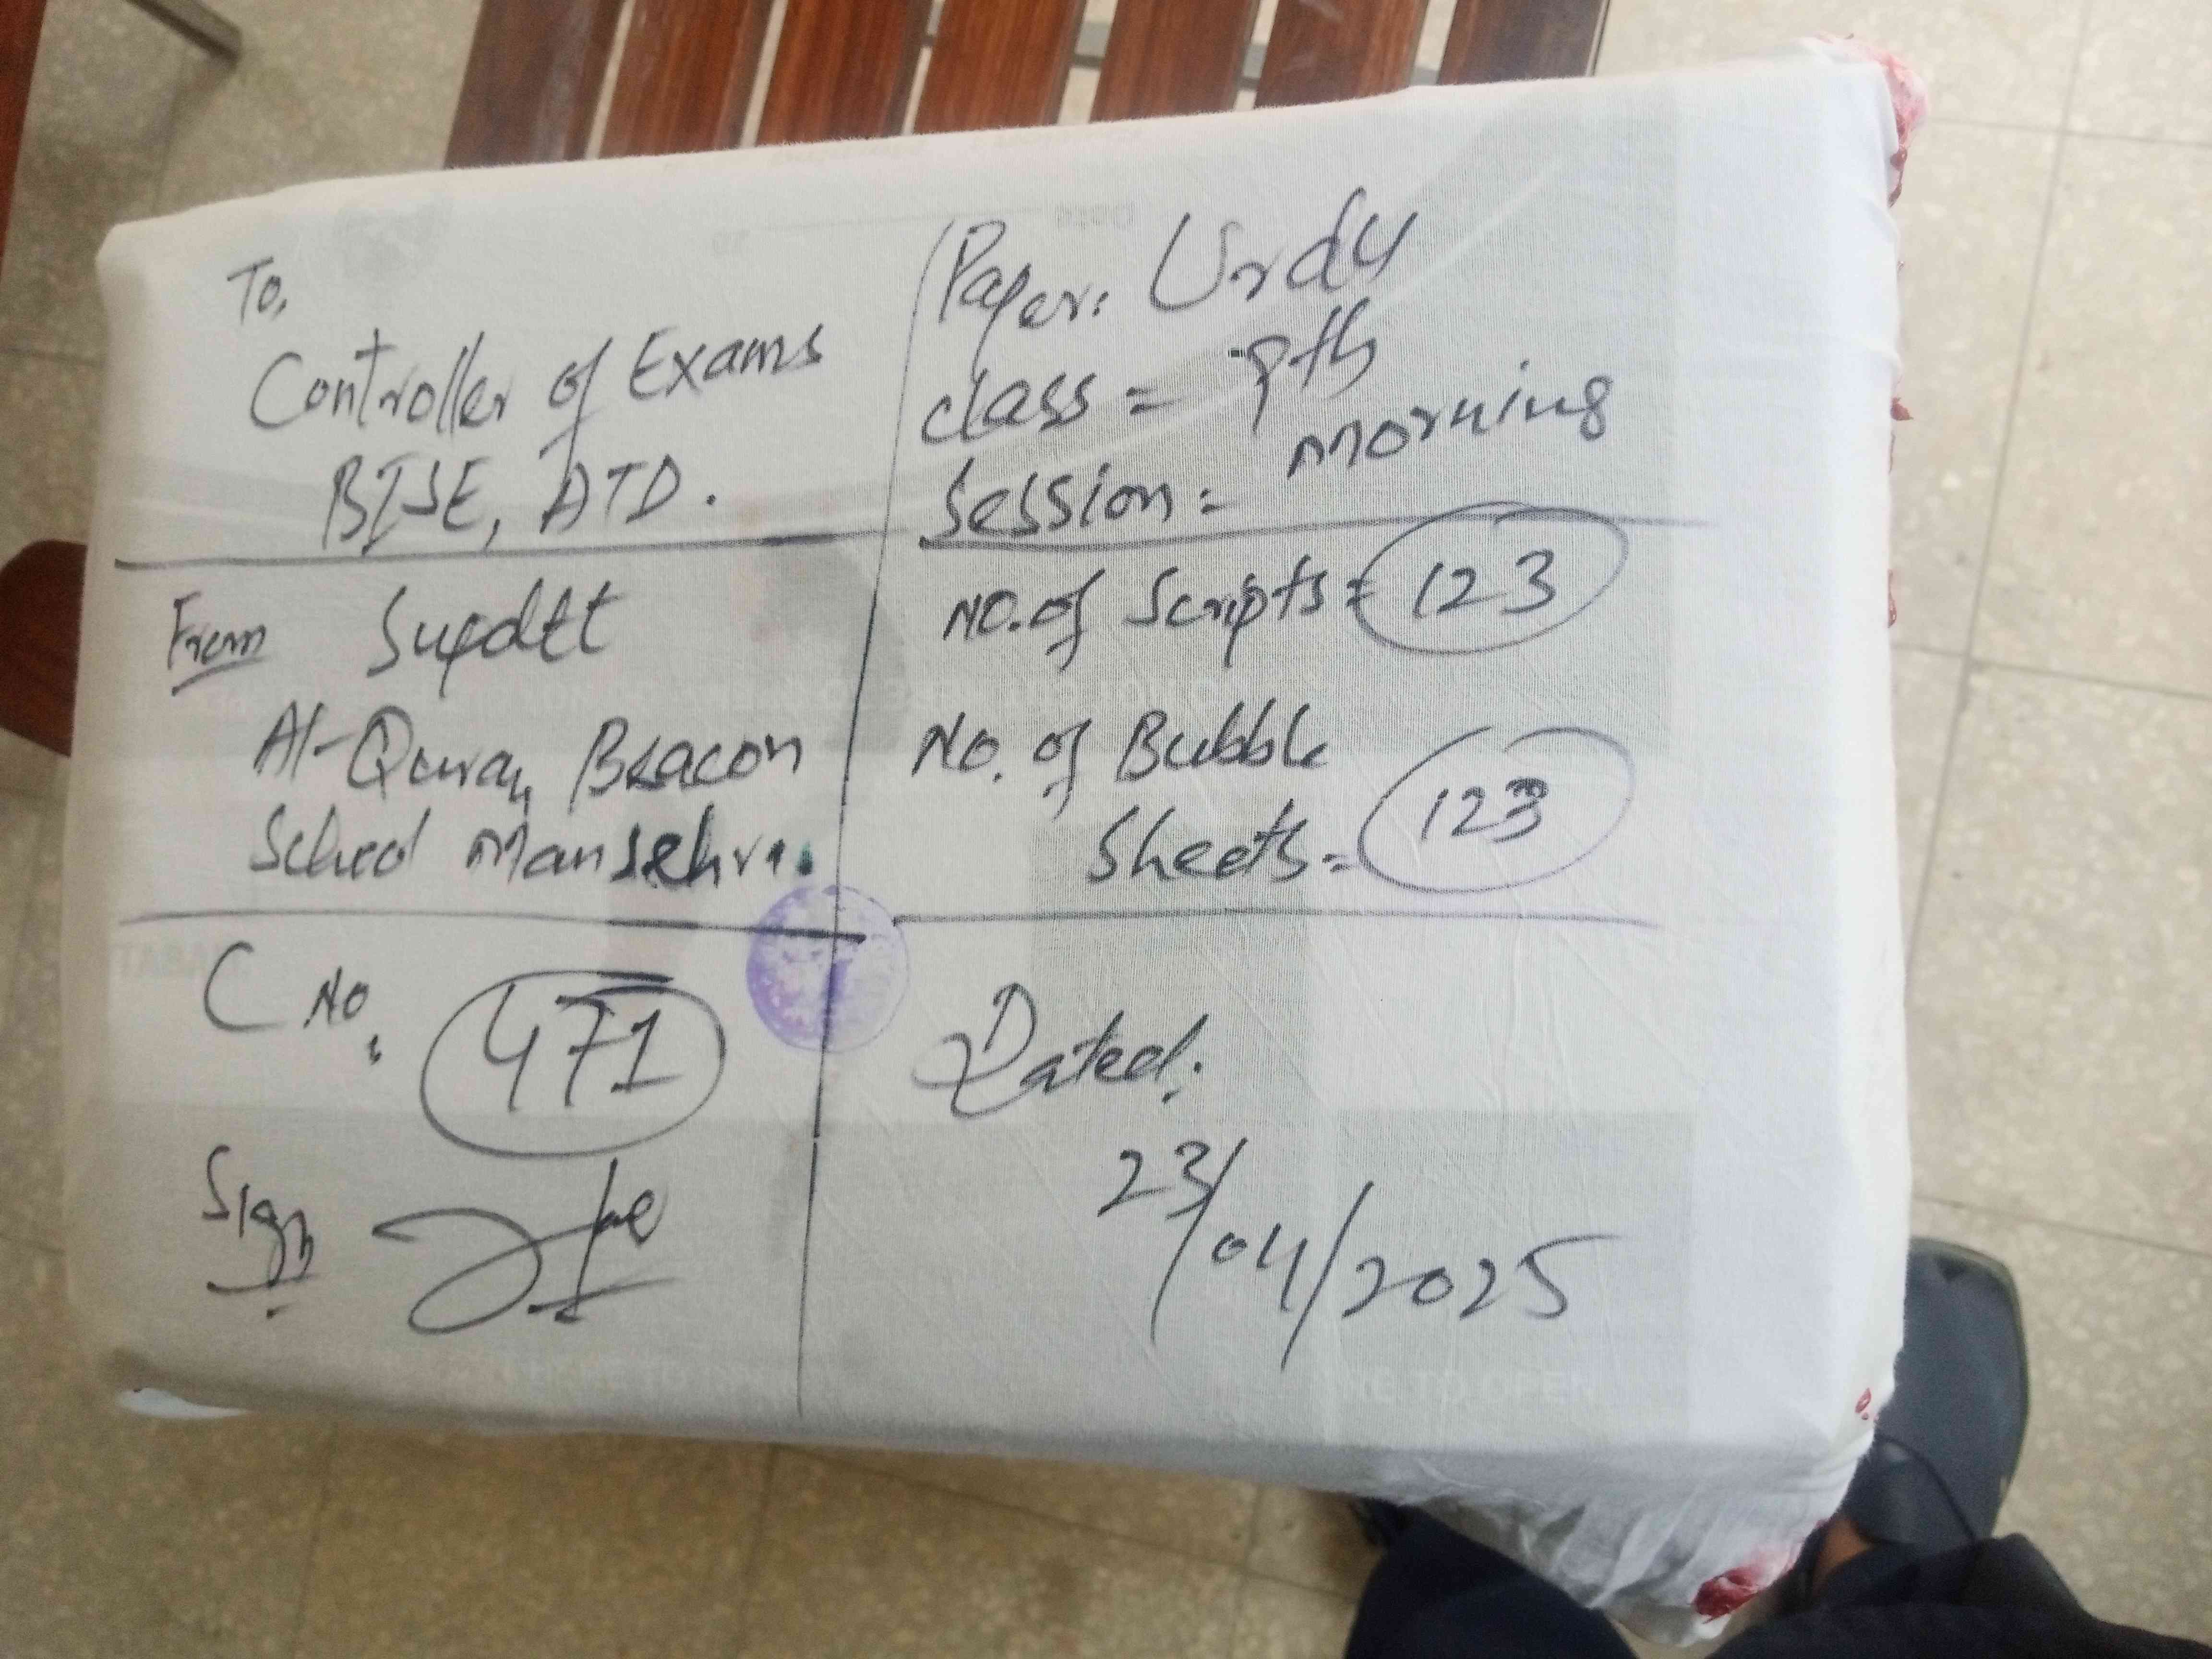 To,
Controller of Exams
BISE, ATD.
Paper: Urdu
class = 9th
Session: Morning
From Supdtt
Al-Quran Beacon
School Mansehra.
NO. of Scripts = 123
No. of Bubble
Sheets = 123
C No. 471
Sign
Dated:
23/04/2025